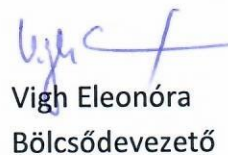 Vigh Eleonóra
Bölcsődevezető